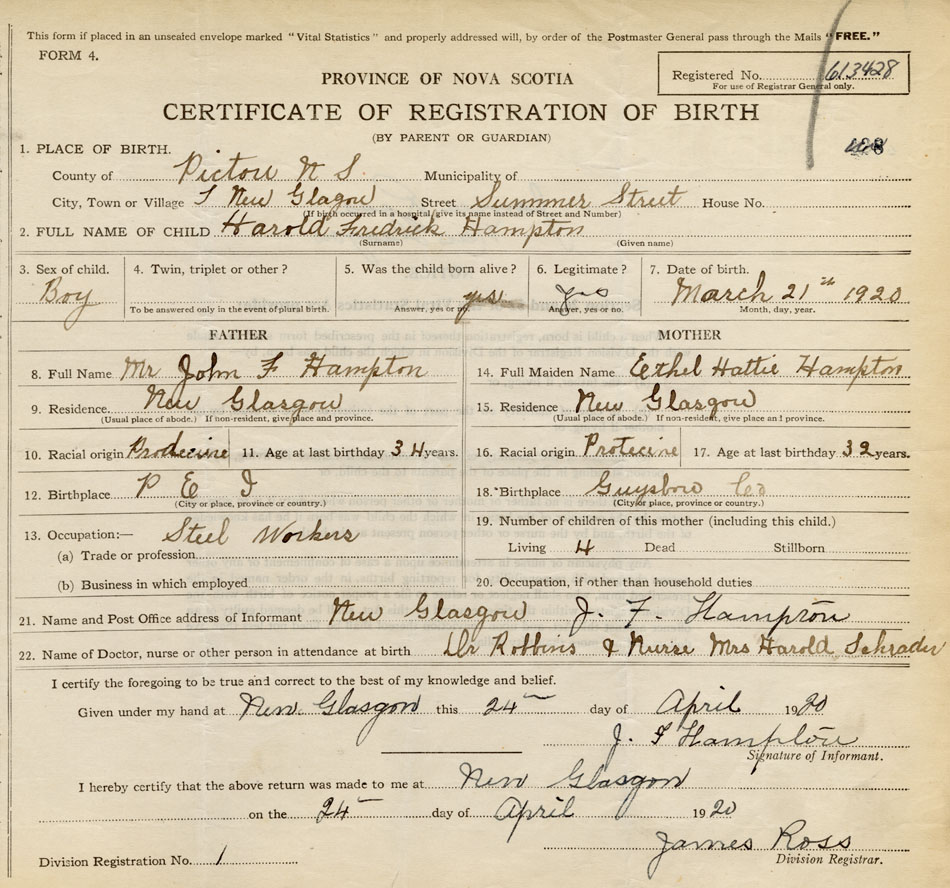 This form if placed in an unsealed envelope marked "Vital Statistics" and properly addressed will, by order of the Postmaster General pass through the Mails "FREE."
FORM 4.
PROVINCE OF NOVA SCOTIA
Registered No. 613428
For use of Registrar General only.
CERTIFICATE OF REGISTRATION OF BIRTH
(BY PARENT OR GUARDIAN)
1. PLACE OF BIRTH.
County of Pictou N S. Municipality of
City, Town or Village New Glagow Street Summer Street House No.
(If birth occurred in a hospital give its name instead of Street and Number)
2. FULL NAME OF CHILD Harold Fredrick Hampton
(Surname) (Given name)
3. Sex of child. 4. Twin, triplet or other? 5. Was the child born alive? 6. Legitimate? 7. Date of birth.
Boy yes yes March 21st 1920
To be answered only in the event of plural birth. Answer, yes or no. Answer, yes or no. Month, day, year.
FATHER MOTHER
8. Full Name Mr John F Hampton 14. Full Maiden Name Ethel Hattie Hampton
9. Residence. New Glasgow 15. Residence New Glasgow
(Usual place of abode.) If non-resident, give place and province. (Usual place of abode.) If non-resident, give place and province.
10. Racial origin 11. Age at last birthday 34 years. 16. Racial origin Protecine 17. Age at last birthday 32 years.
12. Birthplace P E I 18. Birthplace Guysboro Co
(City or place, province or country.) (City or place, province or country.)
13. Occupation:— Steel Workers 19. Number of children of this mother (including this child.)
(a) Trade or profession Living 4 Dead Stillborn
(b) Business in which employed 20. Occupation, if other than household duties
21. Name and Post Office address of Informant New Glasgow J. F. Hampton
22. Name of Doctor, nurse or other person in attendance at birth Dr Robbins & Nurse Mrs Harold Schrader
I certify the foregoing to be true and correct to the best of my knowledge and belief.
Given under my hand at New Glasgow this 24 day of April 1920
J. F Hampton
Signature of Informant.
I hereby certify that the above return was made to me at New Glasgow
on the 24 day of April 1920
James Ross
Division Registration No. 1 Division Registrar.